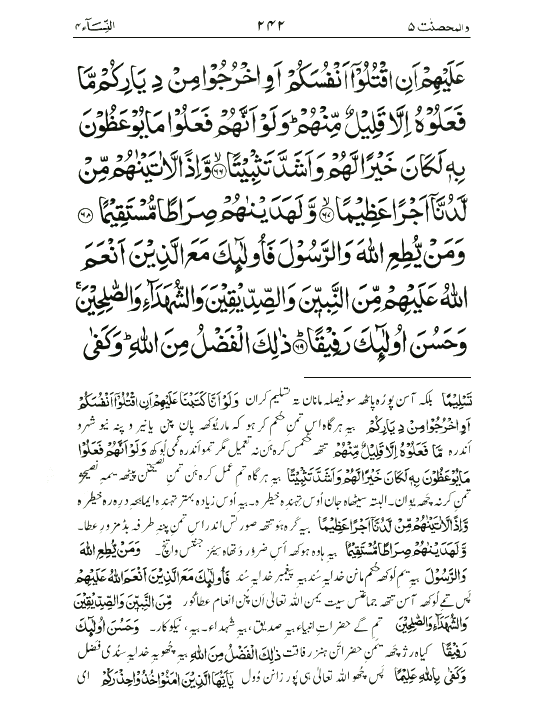 والمحصنٰت ۵ ۲۴۲ النِّسَآء ۴
عَلَيْهِمْ اَنِ اقْتُلُوْٓا اَنْفُسَكُمْ اَوِ اخْرُجُوْا مِنْ دِيَارِكُمْ مَّا
فَعَلُوْهُ اِلَّا قَلِيْلٌ مِّنْهُمْ ؕ وَلَوْ اَنَّهُمْ فَعَلُوْا مَا يُوْعَظُوْنَ
بِهٖ لَكَانَ خَيْرًا لَّهُمْ وَاَشَدَّ تَثْبِيْتًا ﴿۶۶﴾ وَّاِذًا لَّاٰتَيْنٰهُمْ مِّنْ
لَّدُنَّآ اَجْرًا عَظِيْمًا ﴿۶۷﴾ وَّلَهَدَيْنٰهُمْ صِرَاطًا مُّسْتَقِيْمًا ﴿۶۸﴾
وَمَنْ يُّطِعِ اللّٰهَ وَالرَّسُوْلَ فَاُولٰٓئِكَ مَعَ الَّذِيْنَ اَنْعَمَ
اللّٰهُ عَلَيْهِمْ مِّنَ النَّبِيّٖنَ وَالصِّدِّيْقِيْنَ وَالشُّهَدَآءِ وَالصّٰلِحِيْنَ ۚ
وَحَسُنَ اُولٰٓئِكَ رَفِيْقًا ﴿۶۹﴾ ذٰلِكَ الْفَضْلُ مِنَ اللّٰهِ ؕ وَكَفٰى
تَسْلِيْمًا بلکہ آسن پورٕ پاٹھہ سو فیصلہ مانان تہ تسلیم کران وَلَوْ اَنَّا كَتَبْنَا عَلَيْهِمْ اَنِ اقْتُلُوْٓا اَنْفُسَكُمْ
اَوِ اخْرُجُوْا مِنْ دِيَارِكُمْ بیہ ہرگاہ اس تمن حکم کر ہو کہ پان پنن یا نیر و پنہ نیو شہرو
اندرہ مَّا فَعَلُوْهُ اِلَّا قَلِيْلٌ مِّنْهُمْ تتھ حکمس کرہن نہ تعمیل مگر تمو اندرہ کم لوکھ وَلَوْ اَنَّهُمْ فَعَلُوْا
مَا يُوْعَظُوْنَ بِهٖ لَكَانَ خَيْرًا لَّهُمْ وَاَشَدَّ تَثْبِيْتًا بیہ ہرگاہ تم عمل کرہن تمن نصیحتن پیٹھہ یمہ نصیحژ
تمن کرنہ چھہ یوان۔ البتہ سیٹھاہ جان اوس تہندہ خیطرہ۔ بیہ اوس زیادہ بہتر تہندہ ایمانچہ خیطرہ
وَّاِذًا لَّاٰتَيْنٰهُمْ مِّنْ لَّدُنَّآ اَجْرًا عَظِيْمًا بیہ کرہو تتھ صورتس اندر اس تمن پننہ طرفہ بڈ مزور عطا۔
وَّلَهَدَيْنٰهُمْ صِرَاطًا مُّسْتَقِيْمًا بیہ ہاوہ ہوکھ اس ضرور وتھاہ سیز جنتس واتچ۔ وَمَنْ يُّطِعِ اللّٰهَ
وَالرَّسُوْلَ بیہ یم لوکھ حکم مانن خدایہ سند بیہ پیغمبر خدایہ سند فَاُولٰٓئِكَ مَعَ الَّذِيْنَ اَنْعَمَ اللّٰهُ عَلَيْهِمْ
پس تمے لوکھ آسن تتھ جماعتس سیت یمن اللہ تعالیٰ ان پنن انعام عطا کور مِّنَ النَّبِيّٖنَ وَالصِّدِّيْقِيْنَ
وَالشُّهَدَآءِ وَالصّٰلِحِيْنَ تم گے حضرات انبیاء بیہ صدیق، بیہ شہداء۔ بیہ، نیکوکار۔ وَحَسُنَ اُولٰٓئِكَ
رَفِيْقًا کیاہ رژ چھہ یمن حضراتن ہنز رفاقت ذٰلِكَ الْفَضْلُ مِنَ اللّٰهِ بیہ چھو یہ خدایہ سندی فضل
وَكَفٰى بِاللّٰهِ عَلِيْمًا پس چھو اللہ تعالیٰ ہی پور زانن وول يٰٓاَيُّهَا الَّذِيْنَ اٰمَنُوْا خُذُوْا حِذْرَكُمْ ای